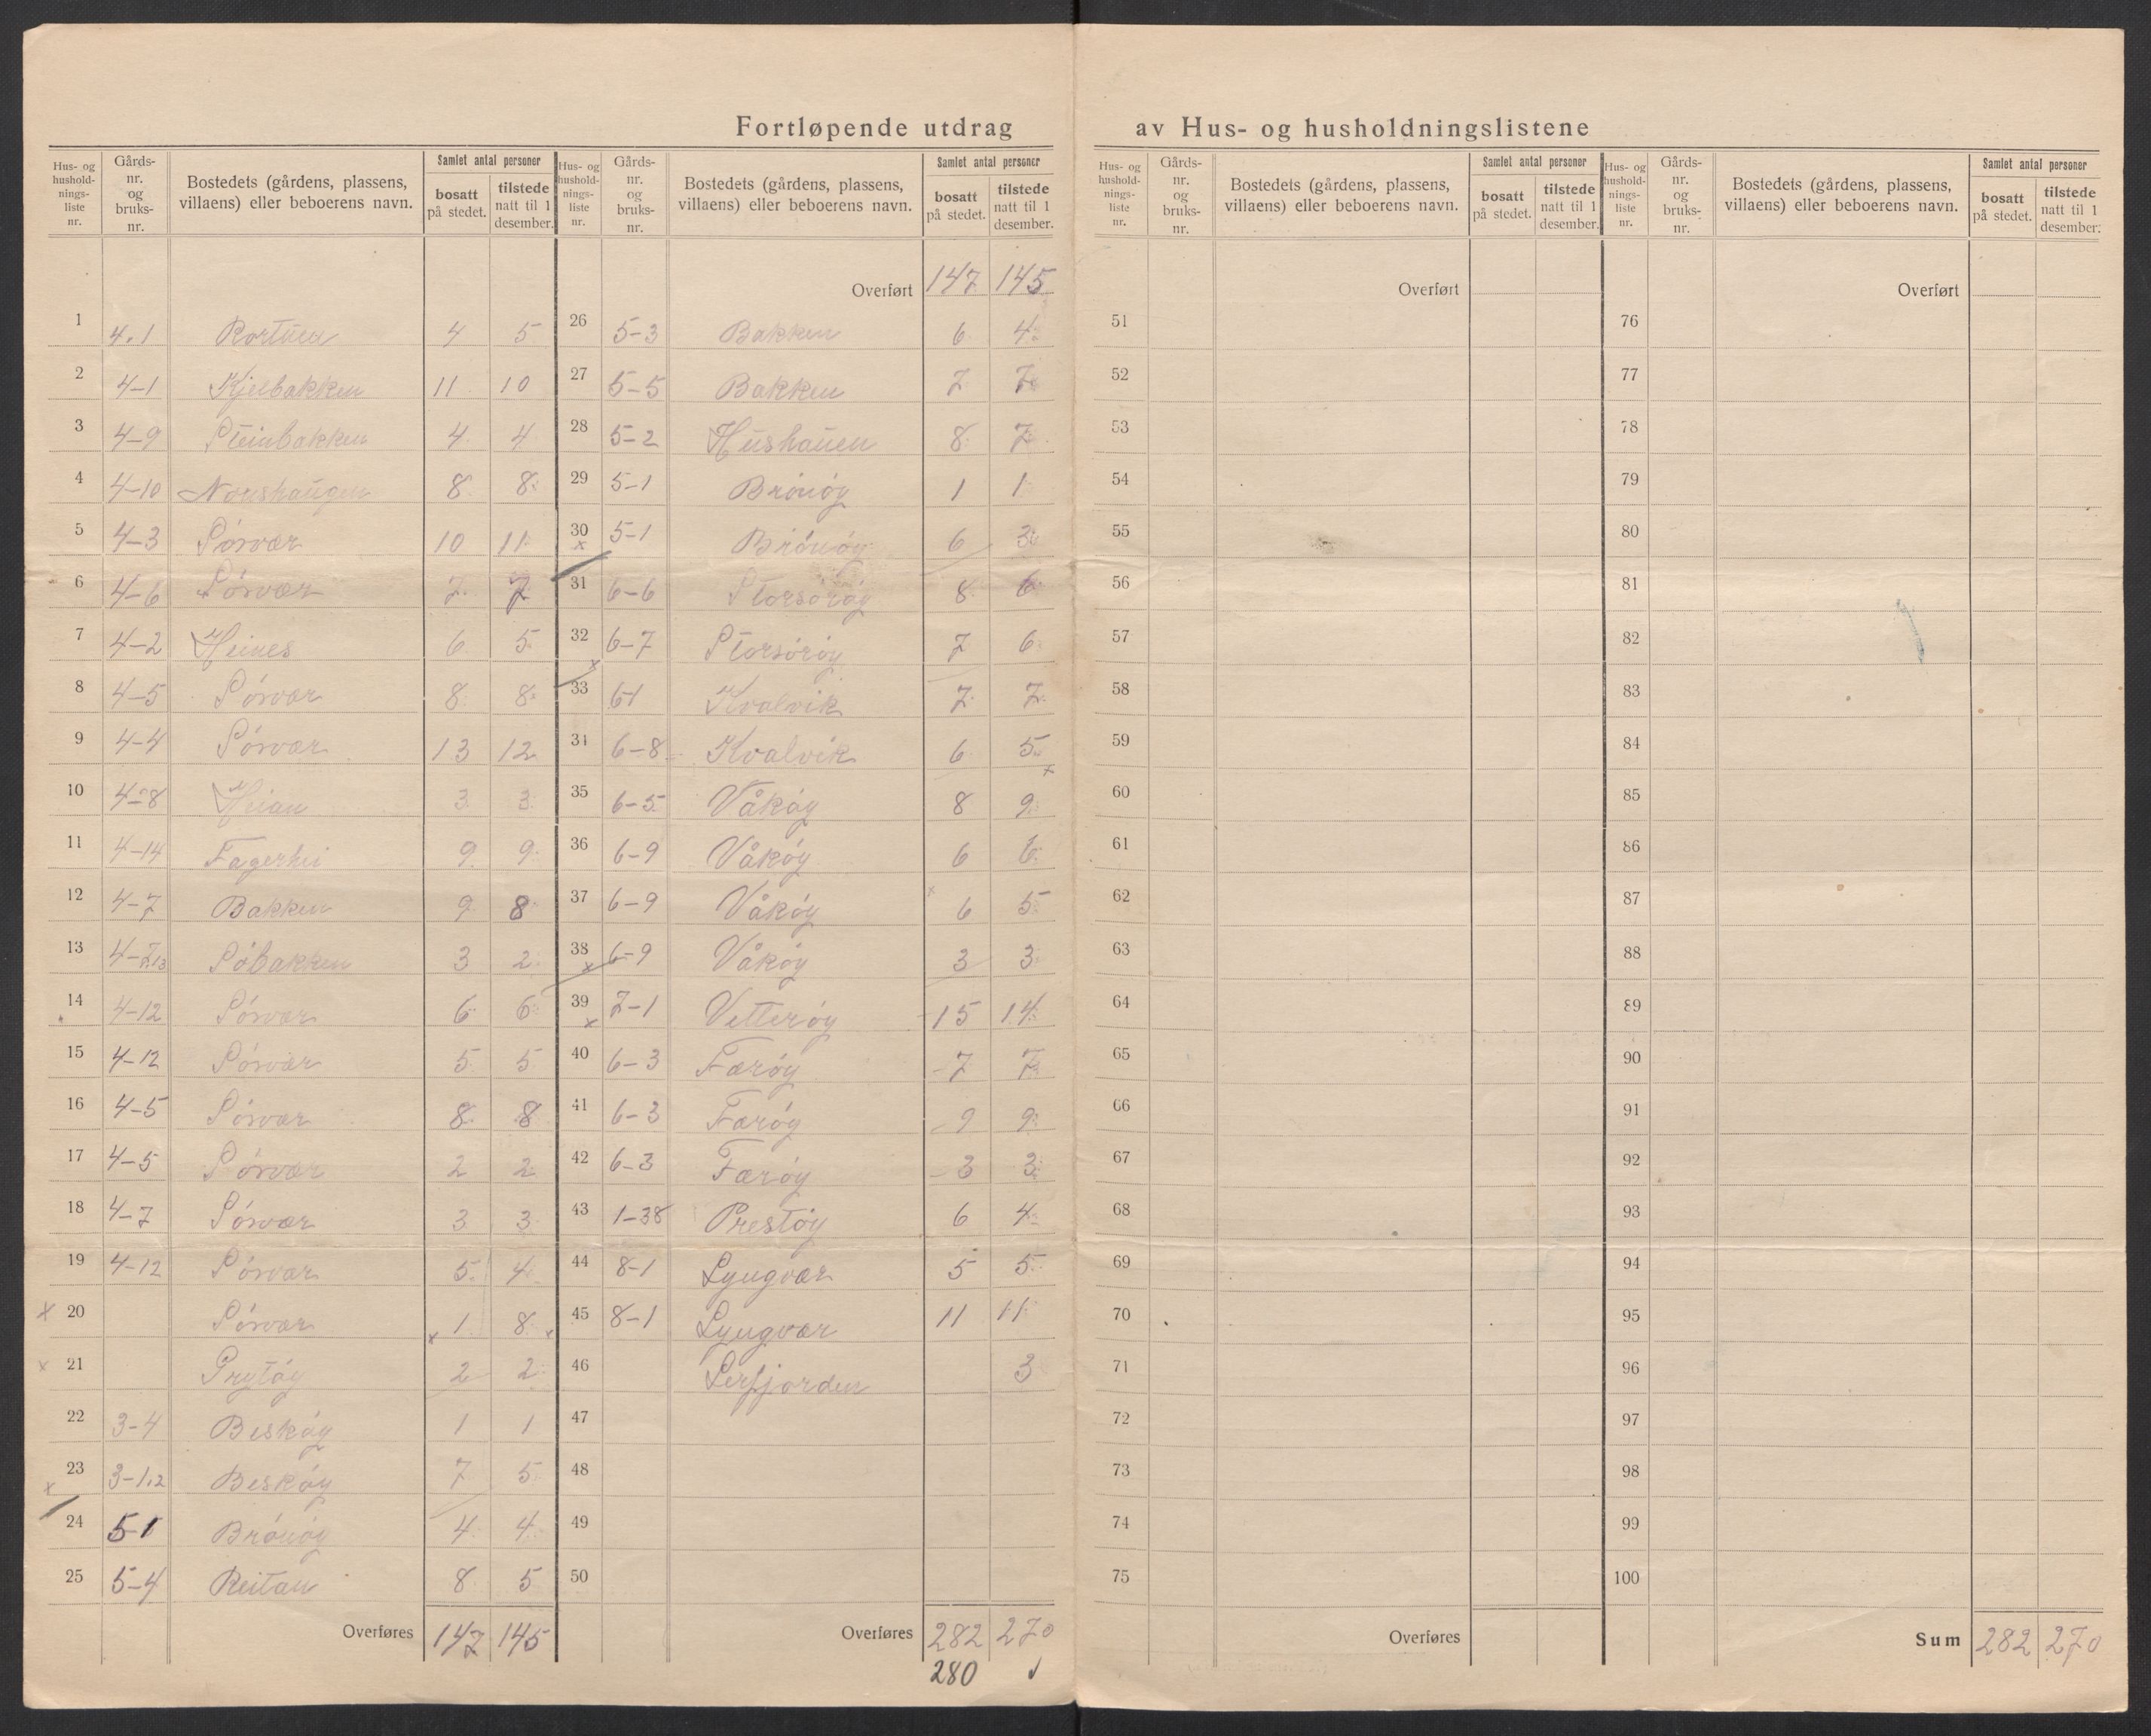 Fortløpende utdrag av Hus- og husholdningslistene
Hus- og husholdnings-liste nr. | Gårds-nr. og bruks-nr. | Bostedets (gårdens, plassens, villaens) eller beboerens navn. | Samlet antal personer bosatt på stedet. | tilstede natt til 1 desember.
1 4.1 Kortnea 4 5
2 4-1 Kjelbakken 11 10
3 4-9 Steinbakken 4 4
4 4-10 Norshaugen 8 8
5 4-3 Sörvær 10 11
6 4-6 Sörvær 7 7
7 4-2 Heines 6 5
8 4-5 Sörvær 8 8
9 4-4 Sörvær 13 12
10 4-8 Heian 3 3
11 4-14 Fagerhei 9 9
12 4-7 Bakken 9 8
13 4-7,13 Söbakken 3 2
14 4-12 Sörvær 6 6
15 4-12 Sörvær 5 5
16 4-5 Sörvær 8 8
17 4-5 Sörvær 2 2
18 4-7 Sörvær 3 3
19 4-12 Sörvær 5 4
x 20 Sörvær x 1 8 x
x 21 Prytöy 2 2
22 3-4 Besköy 1 1
23 3-1,2 Besköy 7 5
x
24 5-1 Brönöy 4 4
25 5-4 Reitan 8 5
Overføres 147 145
Hus- og husholdnings-liste nr. | Gårds-nr. og bruks-nr. | Bostedets (gårdens, plassens, villaens) eller beboerens navn. | Samlet antal personer bosatt på stedet. | tilstede natt til 1 desember.
Overført 147 145
26 5-3 Bakken 6 4
27 5-5 Bakken 7 7
28 5-2 Hushauen 8 7
29 5-1 Brönöy 1 1
30 x 5-1 Brönöy 6 3
31 6-6 Storsöröy 8 6
32 6-7 Storsöröy 7 6
x
33 6-1 Kvalvik 7 7
34 6-8 Kvalvik 6 5
x
35 6-5 Våköy 8 9
36 6-9 Våköy 6 6
37 6-9 Våköy x 6 5
38 x 6-9 Våköy 3 3
39 x 7-1 Vetteröy 15 14
40 6-3 Færöy 7 7
41 6-3 Færöy 9 9
42 6-3 Færöy 3 3
43 1-38 Prestöy 6 4
44 8-1 Lyngvær 5 5
45 8-1 Lyngvær 11 11
46 Leirfjorden 3
47
48
49
50
Overføres 282 270
280
Hus- og husholdnings-liste nr. | Gårds-nr. og bruks-nr. | Bostedets (gårdens, plassens, villaens) eller beboerens navn. | Samlet antal personer bosatt på stedet. | tilstede natt til 1 desember.
Overført
51
52
53
54
55
56
57
58
59
60
61
62
63
64
65
66
67
68
69
70
71
72
73
74
75
Overføres
Hus- og husholdnings-liste nr. | Gårds-nr. og bruks-nr. | Bostedets (gårdens, plassens, villaens) eller beboerens navn. | Samlet antal personer bosatt på stedet. | tilstede natt til 1 desember.
Overført
76
77
78
79
80
81
82
83
84
85
86
87
88
89
90
91
92
93
94
95
96
97
98
99
100
Sum 282 270